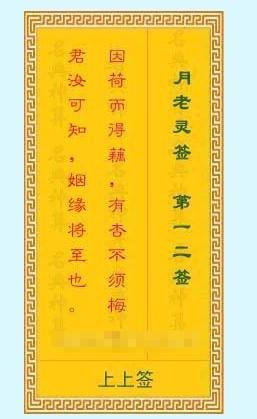 月老灵签 第一二签
因荷而得藕，有杏不须梅
君汝可知，姻缘将至也。
上上签